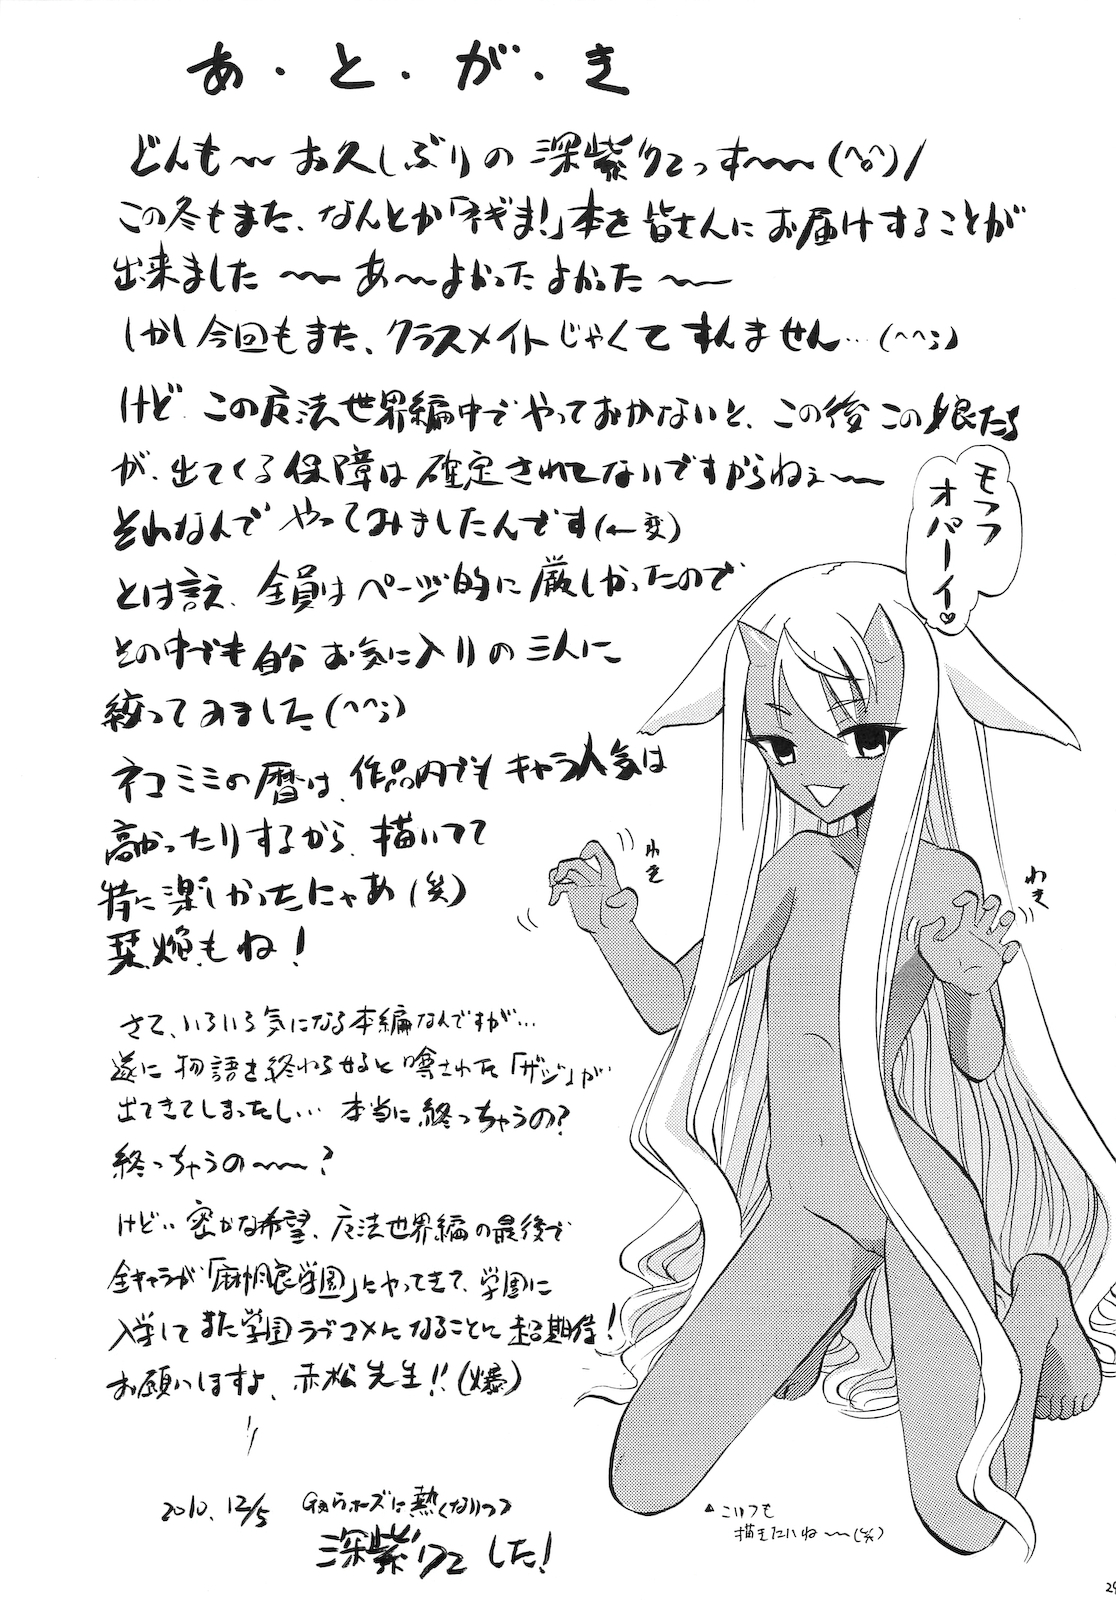 あ・と・が・き
どんも〜 お久しぶりの 深紫 っす〜〜(^o^)/
この冬もまた、なんとか「ネギま!」本を皆さんにお届けすることが
出来ました 〜〜 あ〜よかったよかった 〜〜
しかし今回もまた、クラスメイトじゃくてすんません…(^^;)
けど この魔法世界編中でやっておかないと、この後この娘たち
が、出てくる保障は確定されてないですからねぇ〜〜
それなんで やってみましたんです(←変)
とは言え、全員はページ的に厳しかったので
その中でも自分お気に入りの三人に
絞ってみました(^^;)
ネコミミの暦は、作品内でもキャラ人気は
高かったりするから、描いてて
特に楽しかったにゃあ(笑)
栞、焔もね!
さて、いろいろ気になる本編なんですが…
遂に物語を終わらせると噂された「ザジ」が
出てきてしまったし… 本当に終っちゃうの?
終っちゃうの〜〜?
けど… 密かな希望、魔法世界編の最後で
全キャラが「麻帆良学園」にやってきて、学園に
入学してまた学園ラブコメになることに超期待!
お願いしますよ、赤松先生!!(爆)
2010.12/5 に熱くなりつつ
深紫 した!